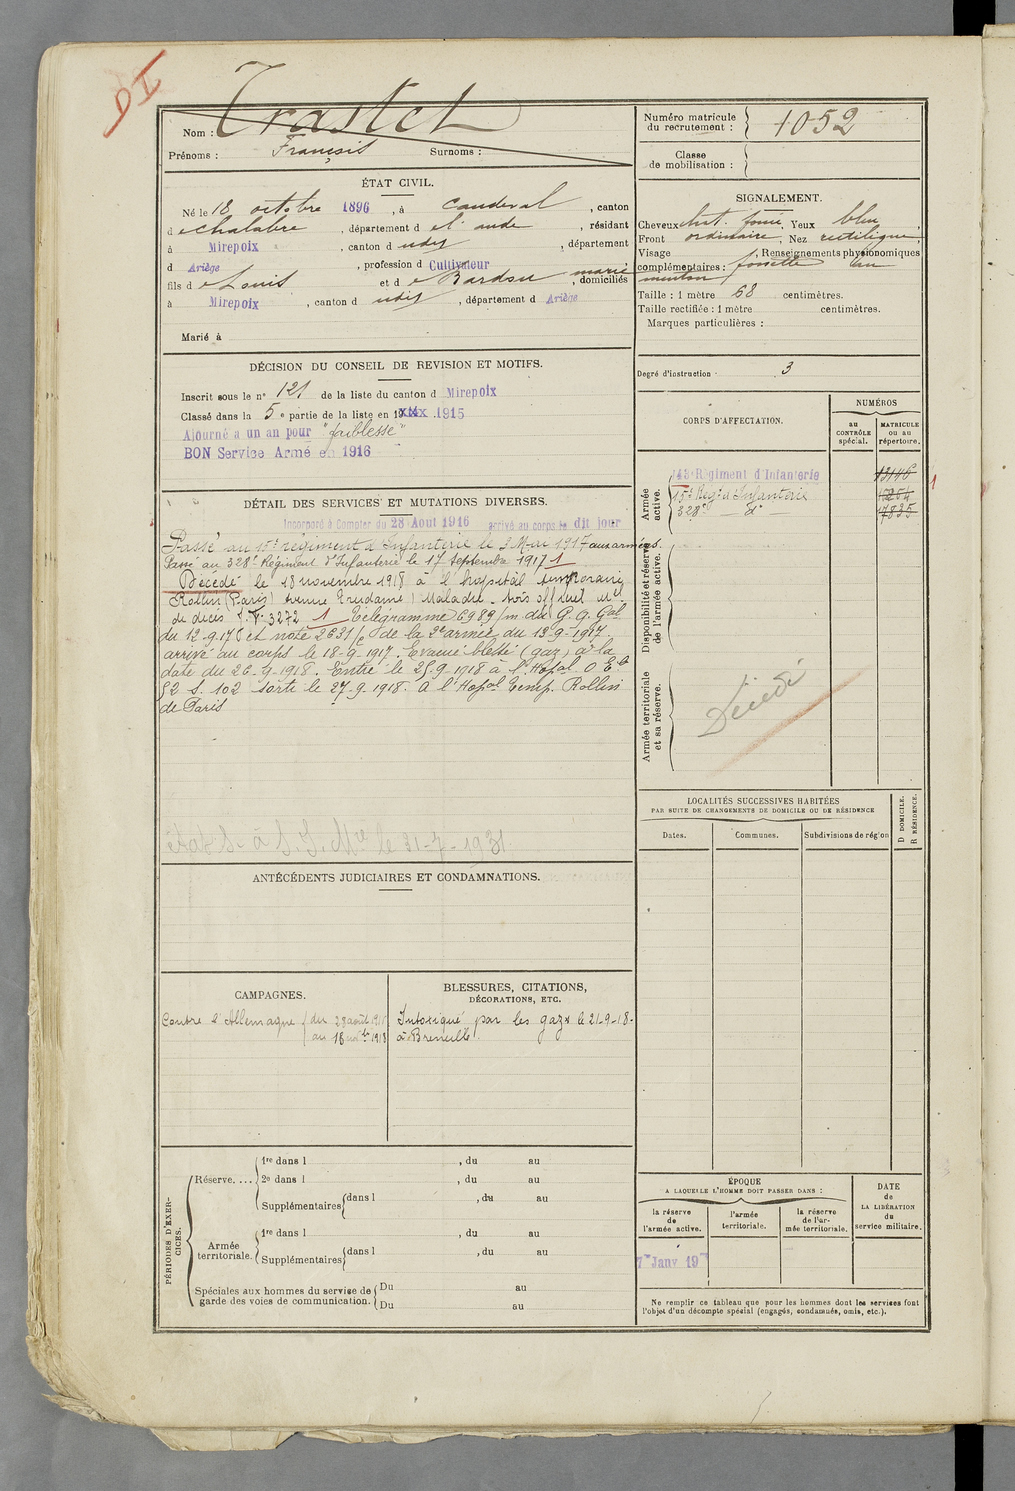 DI
Nom : Trastet
Prénoms : François Surnoms :
Numéro matricule du recrutement : 1052
Classe de mobilisation :
ÉTAT CIVIL.
Né le 18 octobre 1896, à Caudeval, canton
de Chalabre, département de l'aude, résidant
à Mirepoix, canton d udit, département
d Ariège, profession d Cultivateur
fils de Louis et de Bardou marié, domiciliés
à Mirepoix, canton d udit, département d Ariège
Marié à
SIGNALEMENT.
Cheveux chat. foncé, Yeux bleu
Front ordinaire, Nez rectiligne,
Visage , Renseignements physionomiques
complémentaires : fossette au
menton
Taille : 1 mètre 68 centimètres.
Taille rectifiée : 1 mètre centimètres.
Marques particulières :
Degré d'instruction 3
DÉCISION DU CONSEIL DE REVISION ET MOTIFS.
Inscrit sous le n° 121 de la liste du canton d Mirepoix
Classé dans la 5e partie de la liste en 1915
Ajourné a un an pour "faiblesse"
BON Service Armé en 1916
DÉTAIL DES SERVICES ET MUTATIONS DIVERSES.
Incorporé à Compter du 28 Aout 1916 arrivé au corps le dit jour
Passé au 15e régiment d'Infanterie le 3 Mai 1917 aux armées.
Passé au 328e Régiment d'Infanterie le 17 Septembre 1917 1
Décédé le 18 novembre 1918 à l'hospital temporaire
Rollin (Paris) avenue Trudaine) Maladie. avis officiel Mel
de décès 3272 1 Télégramme 6989/m du G. Q. Gal
du 12-9-17 et note 2631/c de la 2e armée du 13-9-1917
arrivé au corps le 18-9-1917. Evacué blessé (gaz) à la
date du 26-9-1918. Entré le 25-9-1918 à l'Hopal O.E.
52 S. 102 sorti le 27-9-1918. A l'Hopal Temp. Rollin
de Paris
à S. S. le 31-7-1931
CORPS D'AFFECTATION.
NUMÉROS
au CONTRÔLE spécial.
MATRICULE ou au répertoire.
Armée active.
143e Régiment d'Infanterie 13146
15e Regt d'Infanterie
328e d° 17835
1
Disponibilité et réserve de l'armée active.
Armée territoriale et sa réserve.
Décédé
LOCALITÉS SUCCESSIVES HABITÉES
PAR SUITE DE CHANGEMENTS DE DOMICILE OU DE RÉSIDENCE
Dates.
Communes.
Subdivisions de région
D DOMICILE.
R RÉSIDENCE.
ANTÉCÉDENTS JUDICIAIRES ET CONDAMNATIONS.
CAMPAGNES.
Contre l'Allemagne du 28 août 1916
au 18 nobre 1918
BLESSURES, CITATIONS,
DÉCORATIONS, ETC.
Intoxiqué par les gaz le 21-9-18-
PÉRIODES D'EXERCICES.
Réserve.... 1re dans l , du au
2e dans l , du au
Supplémentaires dans l , du au
Armée territoriale. 1re dans l , du au
Supplémentaires dans l , du au
Spéciales aux hommes du service de garde des voies de communication. Du au
Du au
ÉPOQUE
A LAQUELLE L'HOMME DOIT PASSER DANS :
la réserve de l'armée active.
l'armée territoriale.
la réserve de l'armée territoriale.
DATE de LA LIBÉRATION du service militaire.
Janv 19
Ne remplir ce tableau que pour les hommes dont les services font
l'objet d'un décompte spécial (engagés, condamnés, omis, etc.).